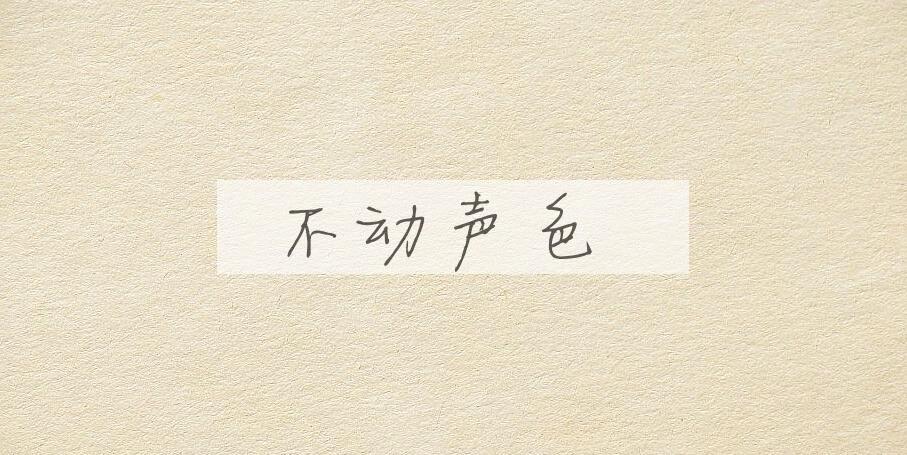 不动声色